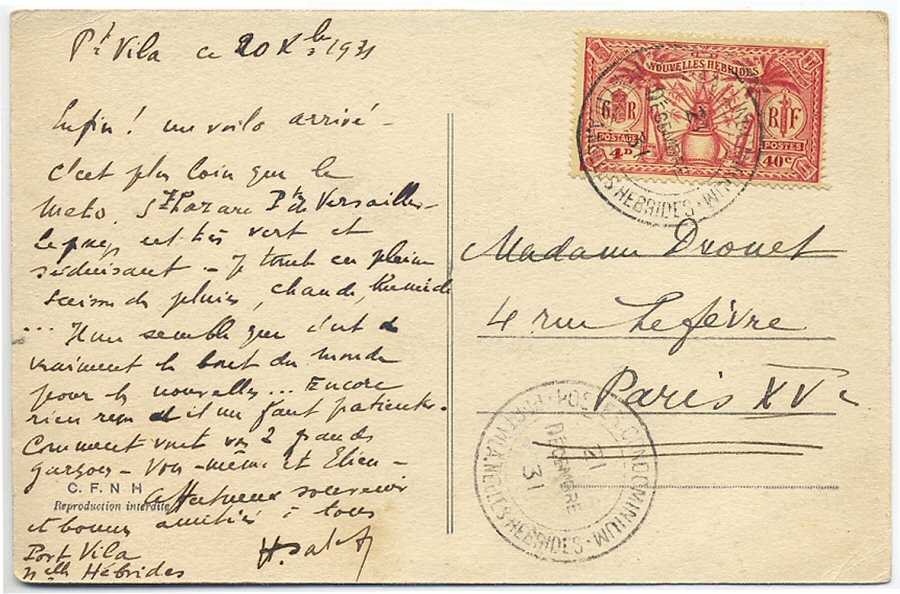 Pt Vila ce 20 Xbre 1931
Enfin ! me voilà arrivé -
c'est plus loin que le
Metro St Lazare Pte de Versailles -
Le pays est très vert et
séduisant - Je tombe en pleine
saison des pluies, chaude, humide
... Il me semble que c'est
vraiment le bout du monde
pour les nouvelles ... Encore
rien reçu et il me faut patienter.
Comment vont vos 2 grands
garçons - Vous-même et Elien -
C. F. N H
Reproduction interdite
Affectueux souvenir
et bonnes amitiés à tous
Port Vila
Nlles Hébrides
NOUVELLES HEBRIDES
R
RF
POSTAGE
POSTES
4D
40c
21
DECEMBRE
31
HEBRIDES
Madame Drouet
4 rue Lefèvre
Paris XVe
CONDOMINIUM
21
DECEMBRE
31
HEBRIDES